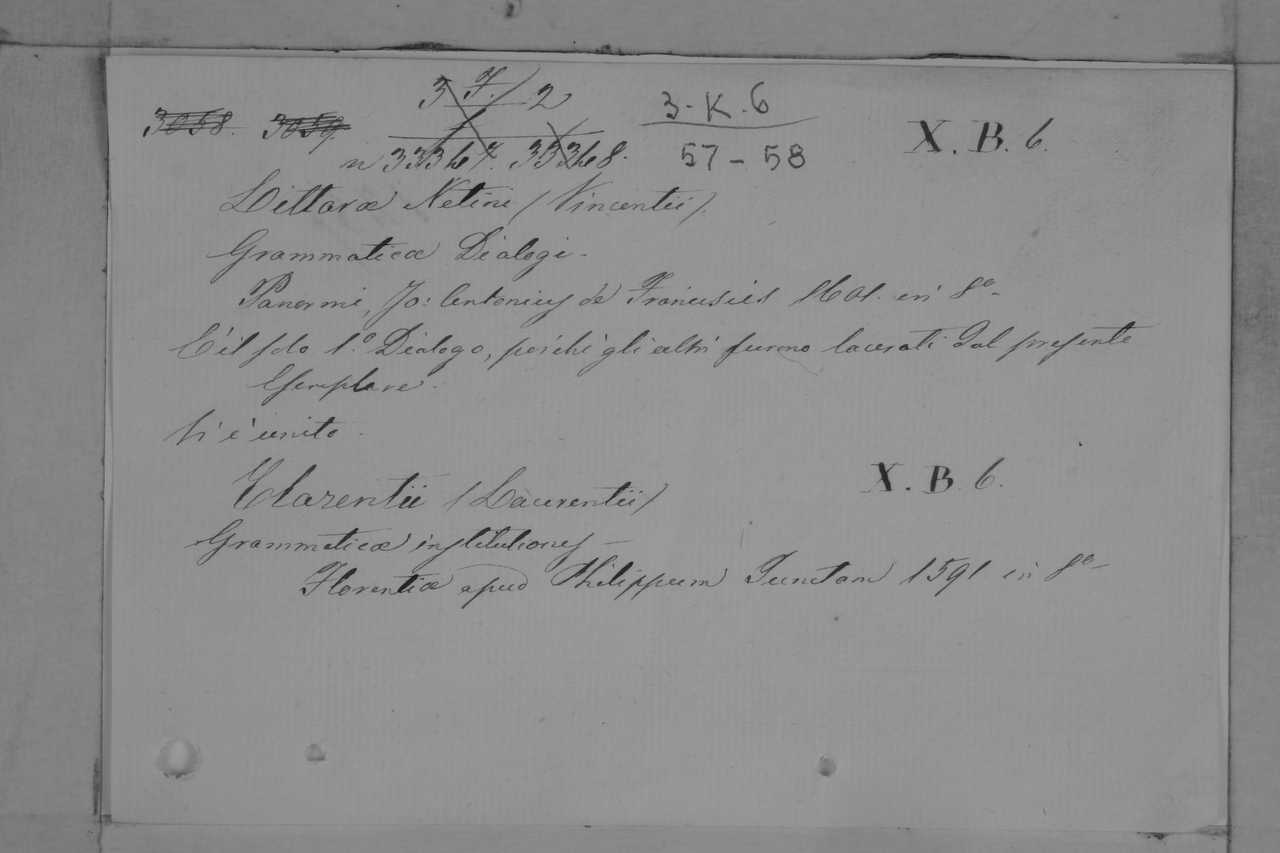 3058. 3059 3 F. 2 3-K.6 X.B.6.
n 33367. 33368. 57-58
Littaræ Netini (Vincentii).
Grammaticæ Dialogi.
Panormi, Jo: Antonius de Franciscis 1601. in 8º-
C'è il solo 1.º Dialogo, perchè gli altri furono lacerati dal presente
Esemplare.
Vi è unito.
(Laurentii) X.B.6.
Grammaticæ institutiones -
Florentiæ apud Philippum Junctam 1591 in 8º-